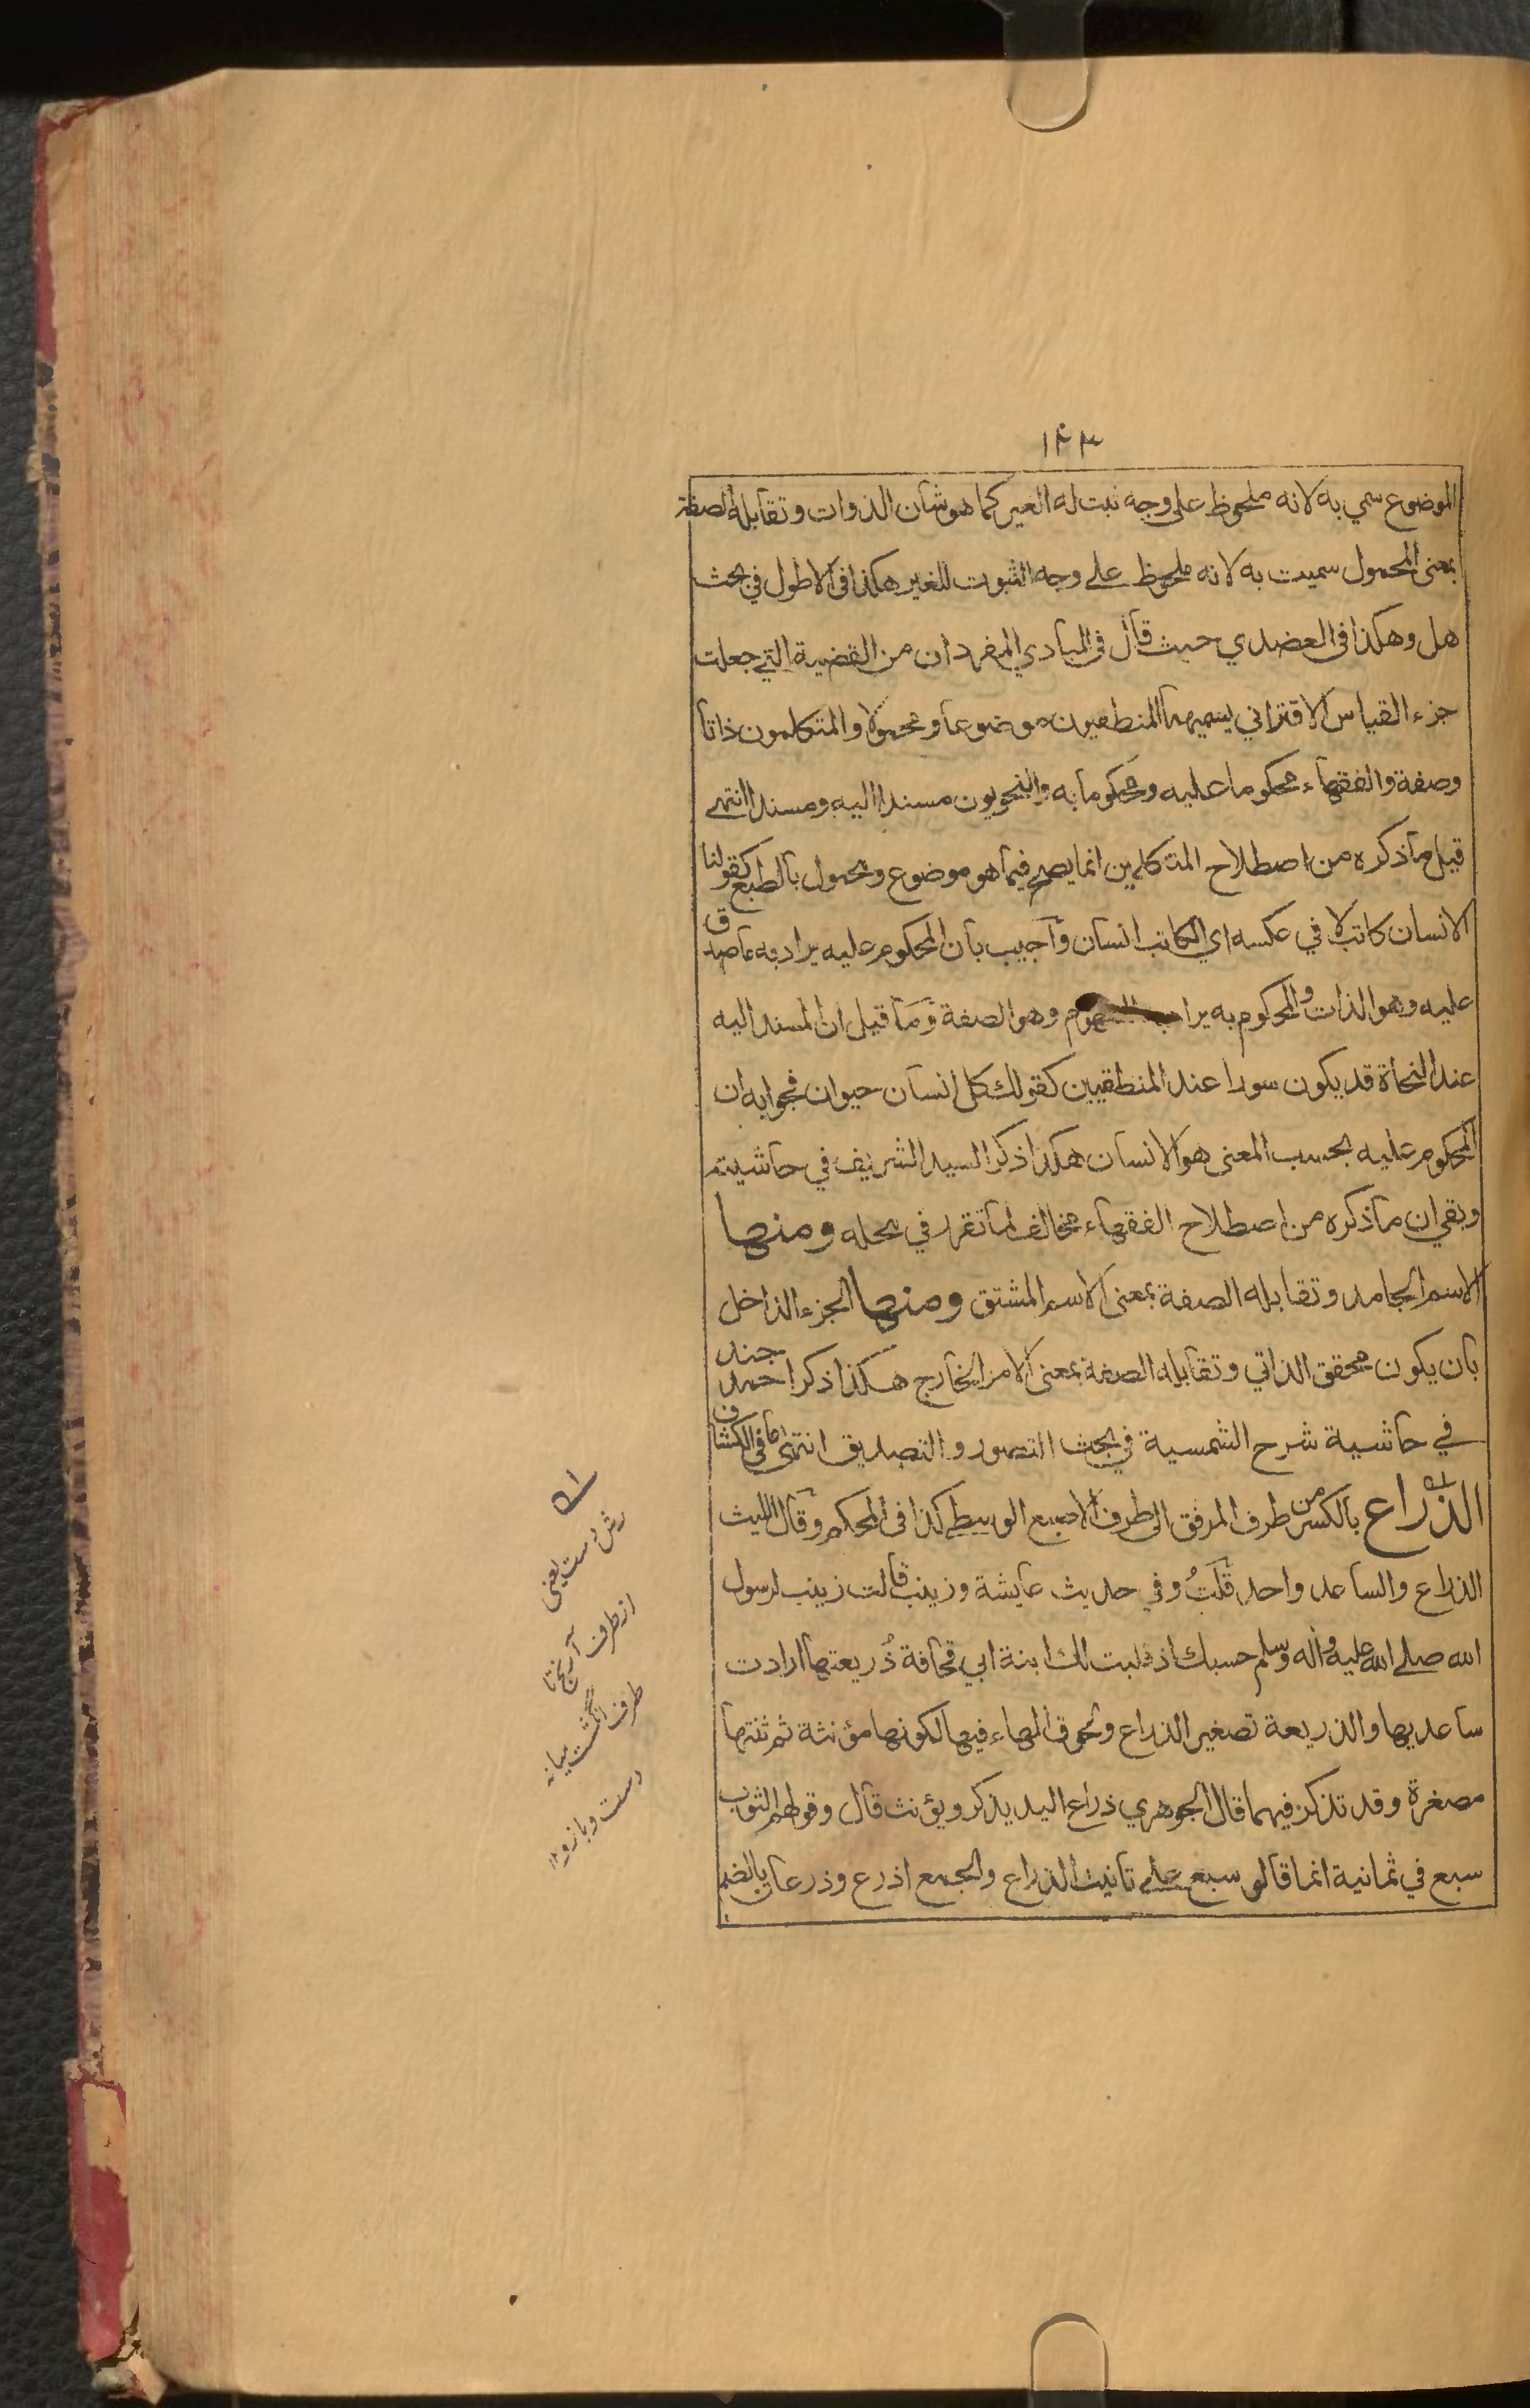 ١٤٣
الموضوع سمي به لانه ملحوظ على وجه ثبت له الغير كما هو شان الذوات وتقابله الصفة
بمعنى المحمول سميت به لانه ملحوظ علے وجه الثبوت للغير هكذا فى الاطول في بحث
هل وهكذا فى العضدي حيث قال فى المبادي المفردان من القضية التي جعلت
جزء القياس الاقتراني يسميهما المنطقيون موضوعا ومحمولا والمتكلمون ذاتا
وصفة والفقهاء محكوما عليه ومحكوما به والنحويون مسندا اليه ومسندا انتهے
قيل ما ذكره من اصطلاح المتكلمين انما يصح فيما هو موضوع ومحمول بالطبع كقولنا
الانسان كاتب لا في عكسه اي الكاتب انسان وأجيب بان المحكوم عليه يراد به ما صدق
عليه وهو الذات والمحكوم به يراد به المفهوم وهو الصفة وما قيل ان المسند اليه
عند النحاة قد يكون سورا عند المنطقيين كقولك كل انسان حيوان فجوابه ان
المحكوم عليه بحسب المعنى هو الانسان هكذا ذكر السيد الشريف في حاشيته
وبقي ان ما ذكره من اصطلاح الفقهاء مخالف لما تقرر في محله ومنها
الاسم الجامد وتقابله الصفة بمعنى الاسم المشتق ومنها الجزء الداخل
بان يكون محقق الذاتي وتقابله الصفة بمعنى الامر الخارج هكذا ذكر احمد جند
في حاشية شرح الشمسية في بحث التصور والتصديق انتهى ما فى الكشاف
الذراع بالكسر من طرف المرفق الى طرف الاصبع الوسطے كذا فى المحكم وقال الليث
الذراع والساعد واحد قلتُ وفي حديث عايشة وزينب قالت زينب لرسول
الله صلے الله عليه واله وسلم حسبك اذ قلبت لك ابنة ابي قحافة ذُريعتيها ارادت
ساعديها والذريعة تصغير الذراع ولحوق الهاء فيها لكونها مؤنثة ثم ثنتها
مصغرة وقد تذكر فيهما قال الجوهري ذراع اليد يذكر ويؤنث قال وقولهم الثوب
سبع في ثمانية انما قالو سبع علے تانيث الذراع والجمع اذرع وذرعان بالضم
رش دست يعنى
از طرف آرنج تا
طرف انگشت ميانه
دست وبازو ١٢